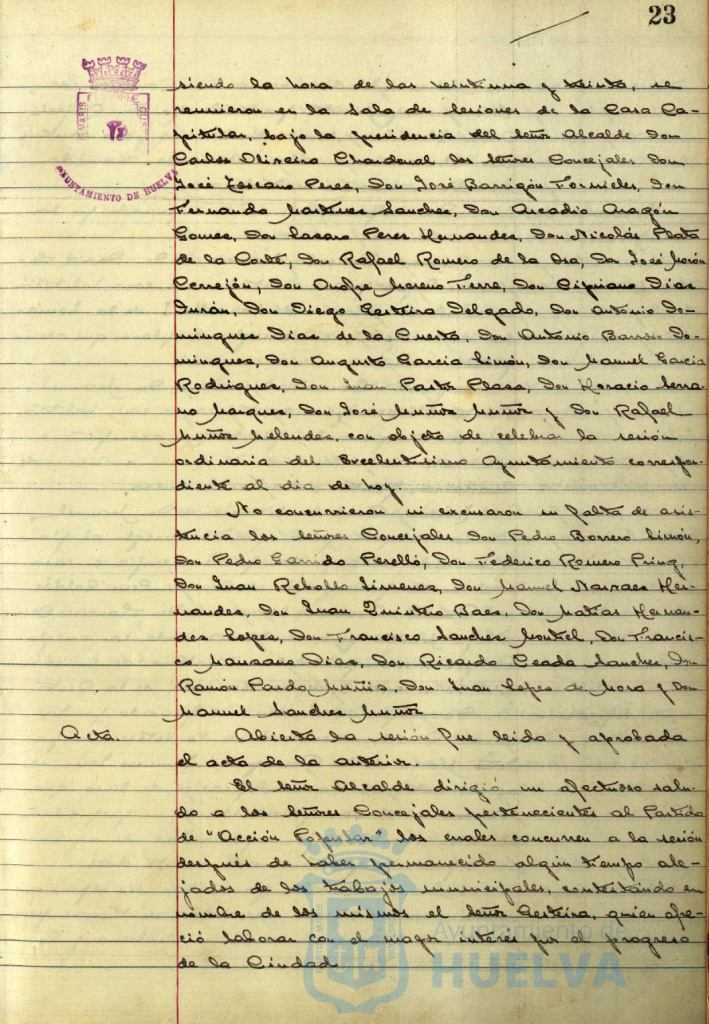 23
siendo la hora de las veintiuna y treinta, se
reunieron en la Sala de Sesiones de la Casa Ca-
pitular, bajo la presidencia del Señor Alcalde Don
Carlos Oliveira Chardenal los Señores Concejales Don
José Toscano Perez, Don José Barrigón Fornieles, Don
Fernando Martinez Sanchez, Don Arcadio Aragón
Gomez, Don Lazaro Perez Hernandez, Don Nicolás Plata
de la Corte, Don Rafael Romero de la Osa, Don José Morón
Cerrejón, Don Onofre Moreno Tierra, Don Cipriano Diaz
Durán, Don Diego Gesteira Delgado, Don Antonio Do-
minguez Diaz de la Cuesta, Don Antonio Barroso Do-
minguez, Don Augusto Garcia Limón, Don Manuel Garcia
Rodriguez, Don Juan Pastor Plaza, Don Horacio Serra-
no Marquez, Don José Muñoz Muñoz y Don Rafael
Muñoz Melendez, con objeto de celebrar la sesión
ordinaria del Excelentisimo Ayuntamiento correspon-
diente al dia de hoy.
No concurrieron ni excusaron su falta de asis-
tencia los Señores Concejales Don Pedro Borrero Limón,
Don Pedro Garrido Perelló, Don Federico Romero
Don Juan Rebollo Jimenez, Don Manuel Narvaez Her-
nandez, Don Juan Quintero Baez, Don Matias Hernan-
dez Lopez, Don Francisco Sanchez Montiel, Don Francis-
co Manzano Diaz, Don Ricardo Ceada Sanchez, Don
Ramón Pardo Muñiz, Don Juan Lopez de Mora y Don
Manuel Sanchez Muñoz
Acta.
Abierta la sesión fue leida y aprobada
el acta de la anterior.
El Señor Alcalde dirigió un afectuoso salu-
do a los Señores Concejales pertenecientes al Partido
de "Acción Popular" los cuales concurren a la sesión
después de haber permanecido algún tiempo ale-
jados de los trabajos municipales, contestando en
nombre de los mismos el Señor Gesteira, quien ofre-
ció laborar con el mayor interés por el progreso
de la Ciudad
AYUNTAMIENTO DE HUELVA
Ayuntamiento de
HUELVA